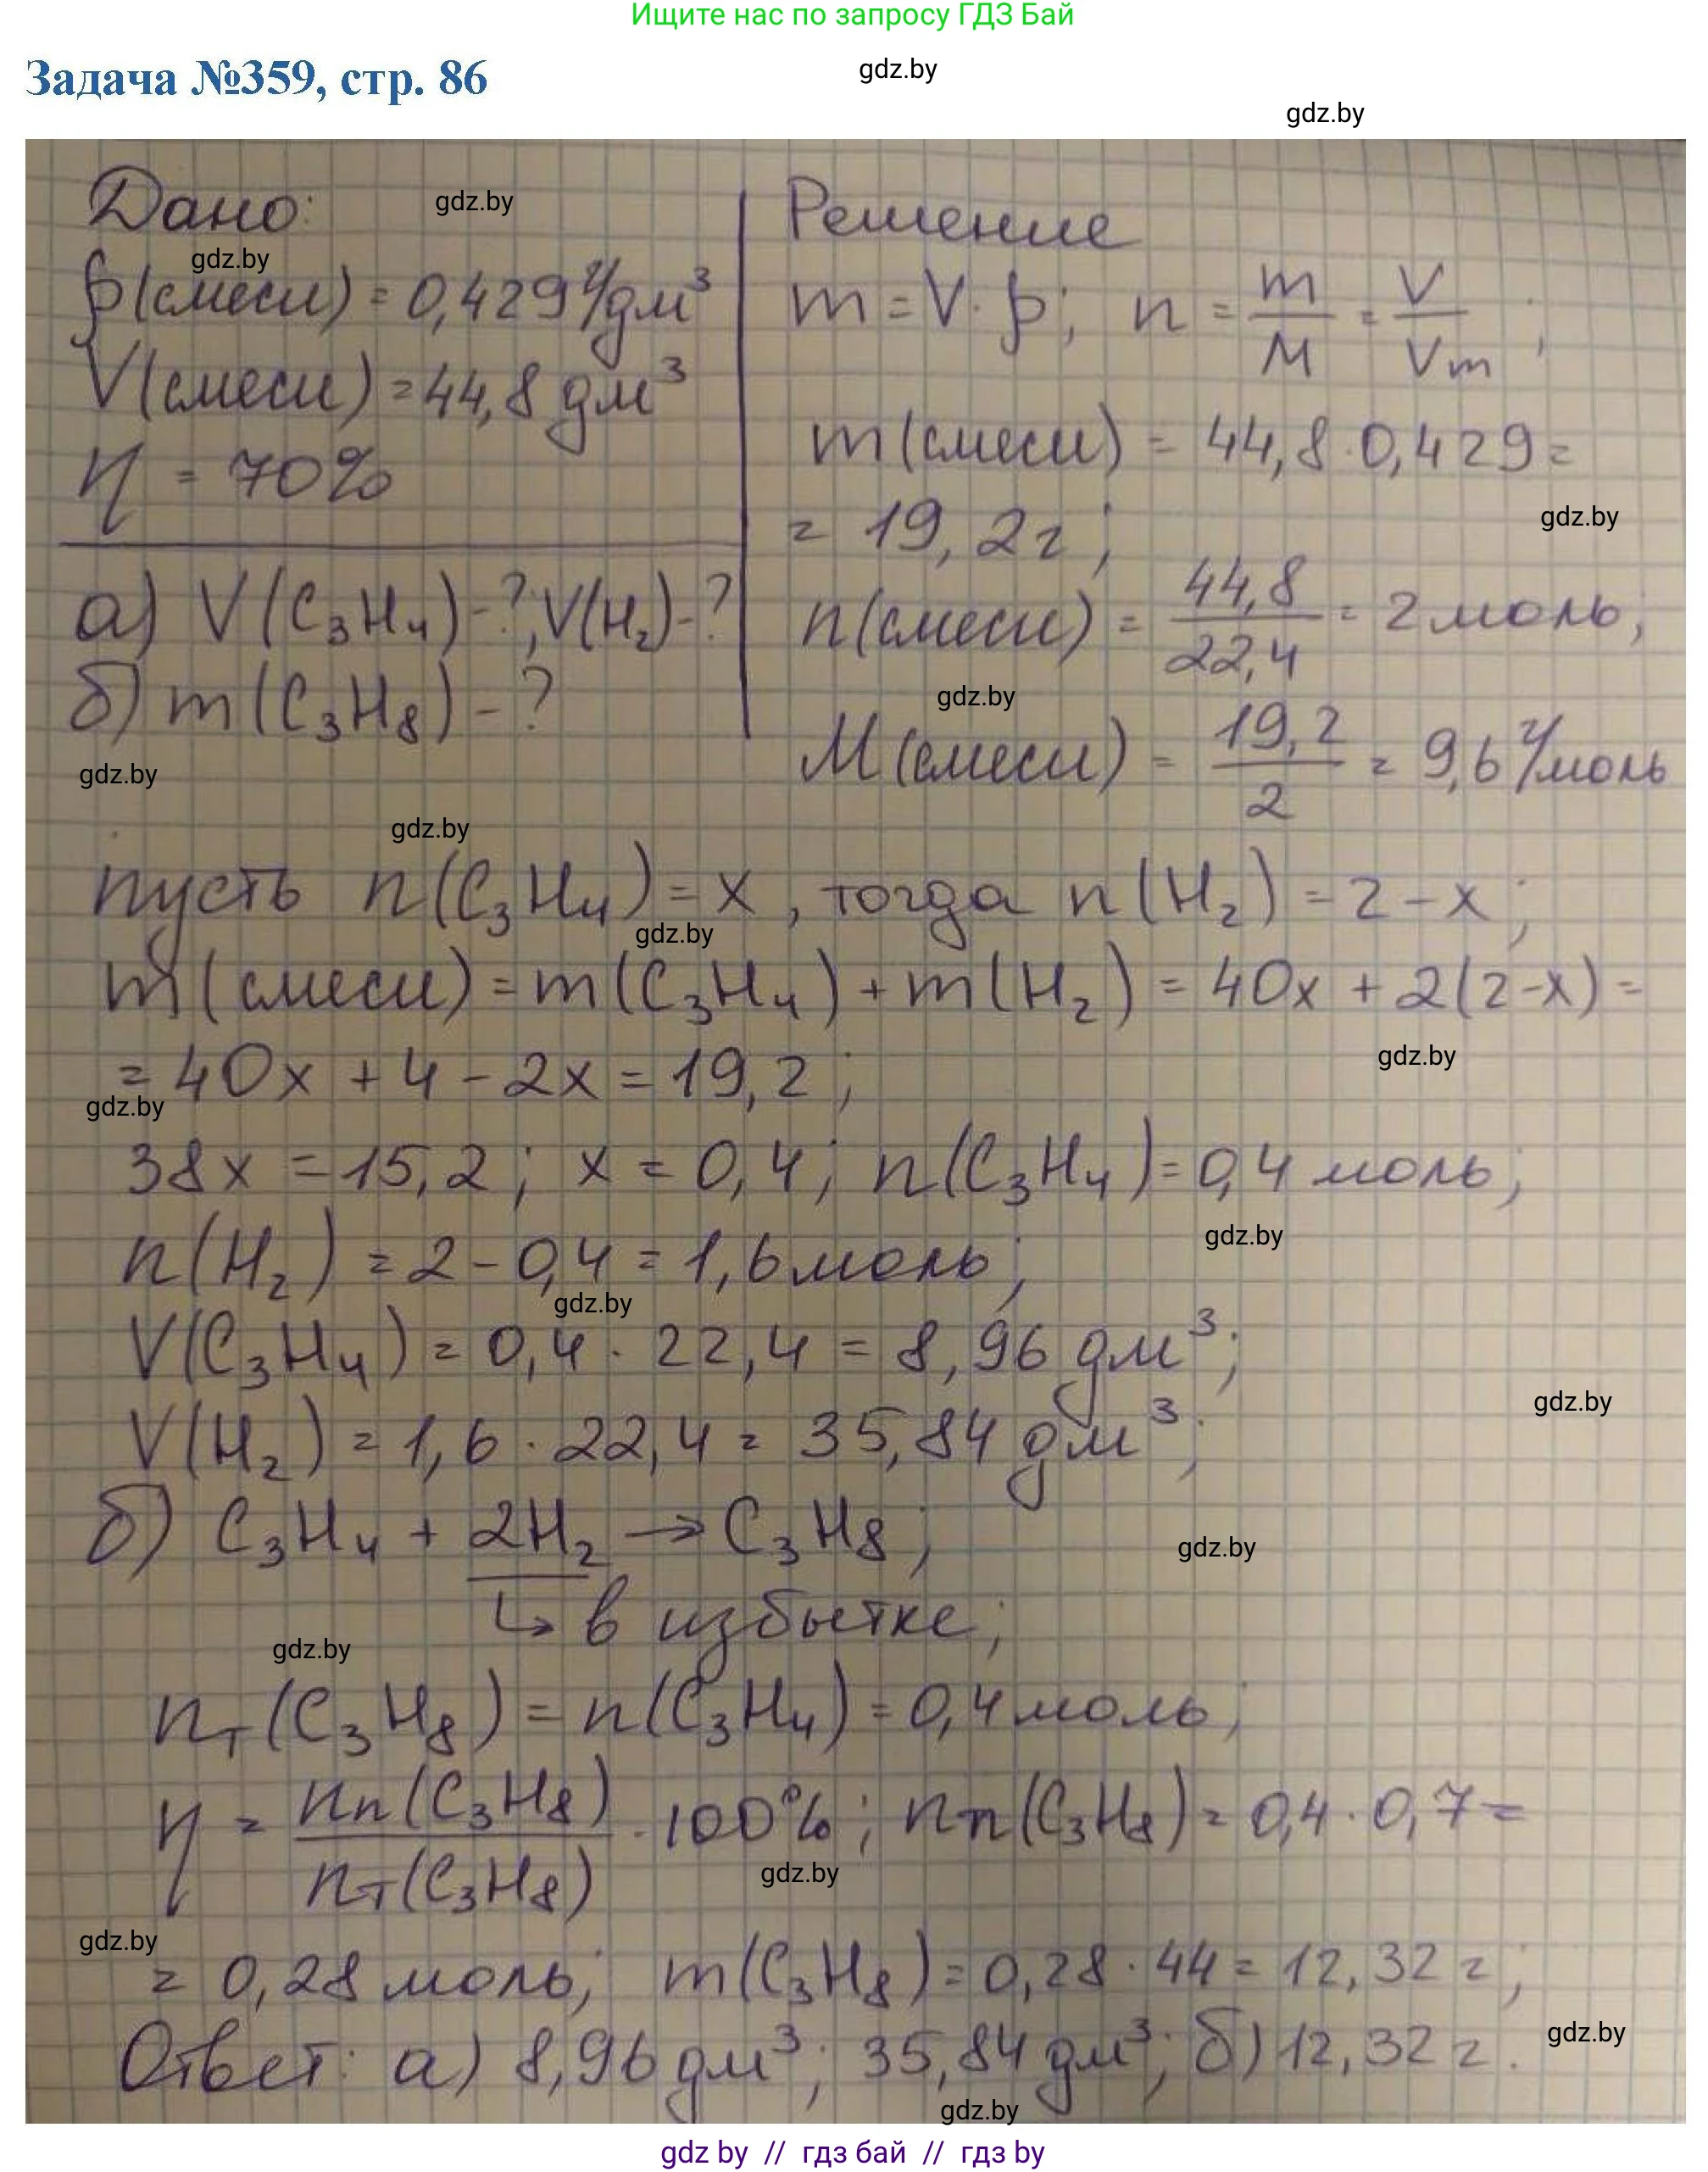 Ищите нас по запросу ГДЗ Бай
Задача №359, стр. 86
gdz.by
gdz.by
Дано:
gdz.by
gdz.by
ρ(смеси) = 0,429 г/дм³
V(смеси) = 44,8 дм³
η = 70%
а) V(C₃H₄)-?; V(H₂)-?
б) m(C₃H₈)-?
gdz.by
Решение
m = V·ρ; n = m/M = V/Vm;
m(смеси) = 44,8·0,429 =
gdz.by
= 19,2г;
n(смеси) = 44,8/22,4 = 2 моль;
gdz.by
M(смеси) = 19,2/2 = 9,6 г/моль
gdz.by
пусть n(C₃H₄) = x, тогда n(H₂) = 2-x;
gdz.by
m(смеси) = m(C₃H₄) + m(H₂) = 40x + 2(2-x) =
gdz.by
= 40x + 4 - 2x = 19,2;
gdz.by
38x = 15,2; x = 0,4; n(C₃H₄) = 0,4 моль;
gdz.by
n(H₂) = 2 - 0,4 = 1,6 моль;
gdz.by
V(C₃H₄) = 0,4 · 22,4 = 8,96 дм³;
gdz.by
V(H₂) = 1,6 · 22,4 = 35,84 дм³;
б) C₃H₄ + 2H₂ → C₃H₈;
gdz.by
↳ в избытке;
gdz.by
nт(C₃H₈) = n(C₃H₄) = 0,4 моль;
η = nп(C₃H₈)/nт(C₃H₈) · 100%; nп(C₃H₈) = 0,4·0,7 =
gdz.by
gdz.by
= 0,28 моль; m(C₃H₈) = 0,28·44 = 12,32 г;
gdz.by
Ответ: а) 8,96 дм³; 35,84 дм³; б) 12,32 г.
gdz.by
gdz by // гдз бай // гдз by